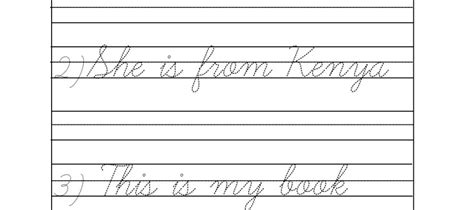 2) She is from Kenya
3) This is my book